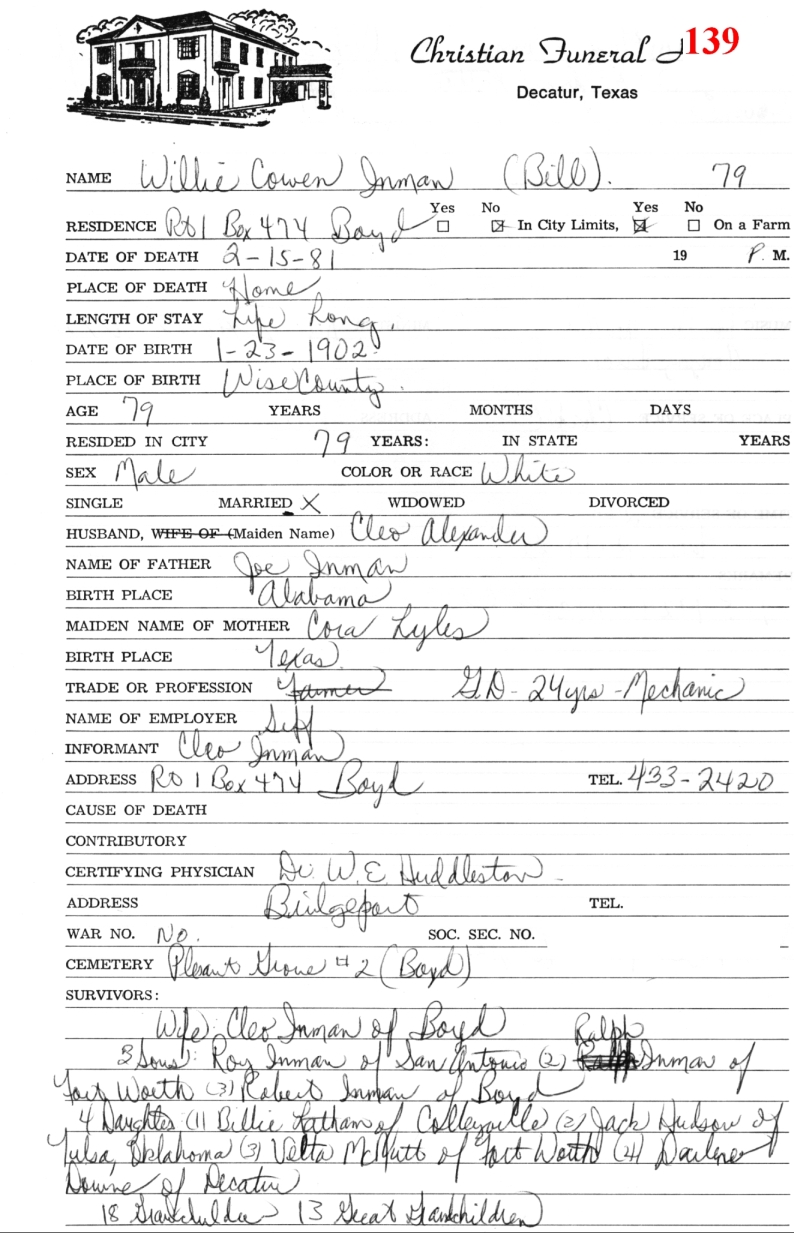 Christian Funeral 139
Decatur, Texas
NAME Willie Cowen Inman (Bill). 79
Yes No Yes No
RESIDENCE Rt 1 Box 474 Boyd ☐ ☒ In City Limits, ☒ ☐ On a Farm
DATE OF DEATH 2-15-81 19 P. M.
PLACE OF DEATH Home
LENGTH OF STAY Life Long.
DATE OF BIRTH 1-23-1902
PLACE OF BIRTH Wise County.
AGE 79 YEARS MONTHS DAYS
RESIDED IN CITY 79 YEARS: IN STATE YEARS
SEX Male COLOR OR RACE White
SINGLE MARRIED X WIDOWED DIVORCED
HUSBAND, WIFE OF (Maiden Name) Cleo Alexander
NAME OF FATHER Joe Inman
BIRTH PLACE Alabama
MAIDEN NAME OF MOTHER Cora Lyles
BIRTH PLACE Texas
TRADE OR PROFESSION Farmer G.D - 24 yrs - Mechanic
NAME OF EMPLOYER
INFORMANT Cleo Inman
ADDRESS Rt 1 Box 474 Boyd TEL. 433-2420
CAUSE OF DEATH
CONTRIBUTORY
CERTIFYING PHYSICIAN Dr. W.E. Huddleston
ADDRESS Bridgeport TEL.
WAR NO. No. SOC. SEC. NO.
CEMETERY Plesant Grove #2 (Boyd)
SURVIVORS:
Wife: Cleo Inman of Boyd Ralph
3 Sons: Roy Inman of San Antonio (2) Inman of
Fort Worth (3) Robert Inman of Boyd
4 Daughters (1) Billie Latham of Colleyville (2) Jack Hudson of
Tulsa, Oklahoma (3) Velta McNutt of Fort Worth (4) Darlene
Downe of Decatur
18 Grandchildren 13 Great Grandchildren